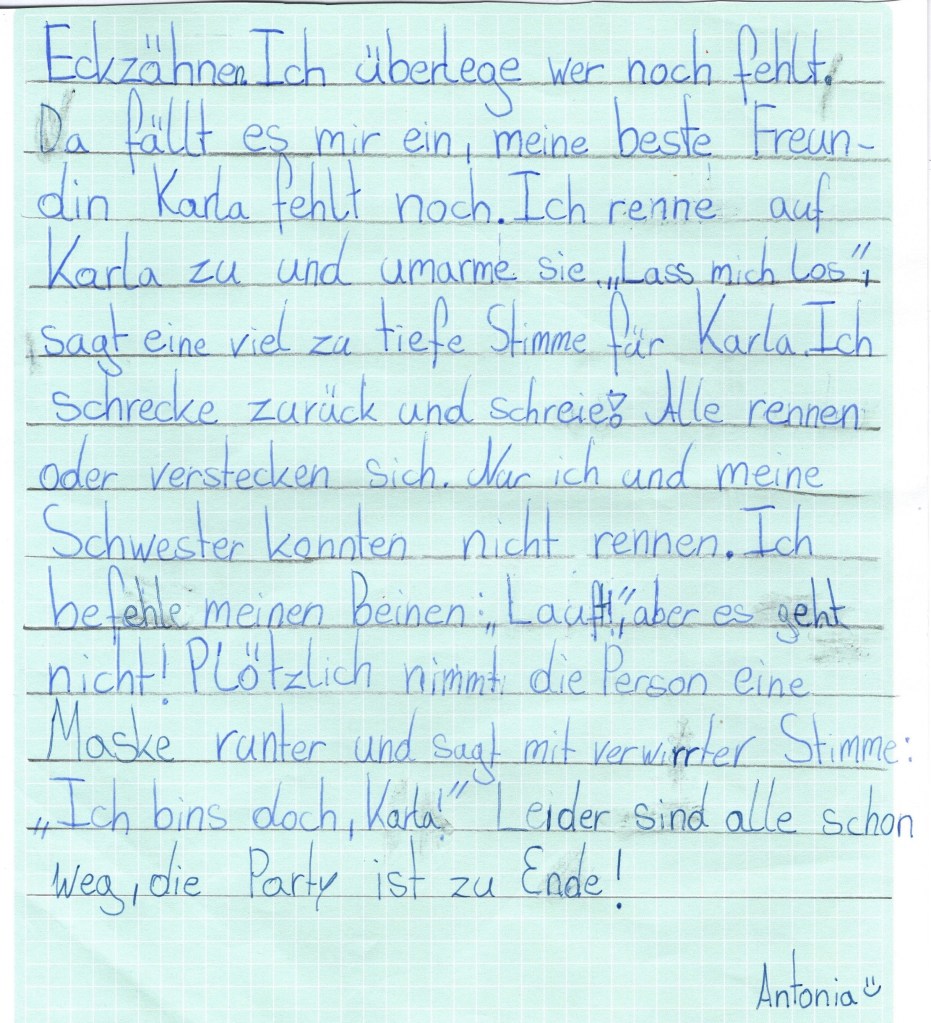 Eckzähnen. Ich überlege wer noch fehlt.
Da fällt es mir ein, meine beste Freun-
din Karla fehlt noch. Ich renne auf
Karla zu und umarme sie. „Lass mich los“,
sagt eine viel zu tiefe Stimme für Karla. Ich
schrecke zurück und schreie! Alle rennen
oder verstecken sich. Nur ich und meine
Schwester konnten nicht rennen. Ich
befehle meinen Beinen: „Lauft!“, aber es geht
nicht! Plötzlich nimmt die Person eine
Maske runter und sagt mit verwirrter Stimme:
„Ich bins doch, Karla!“ Leider sind alle schon
weg, die Party ist zu Ende!
Antonia